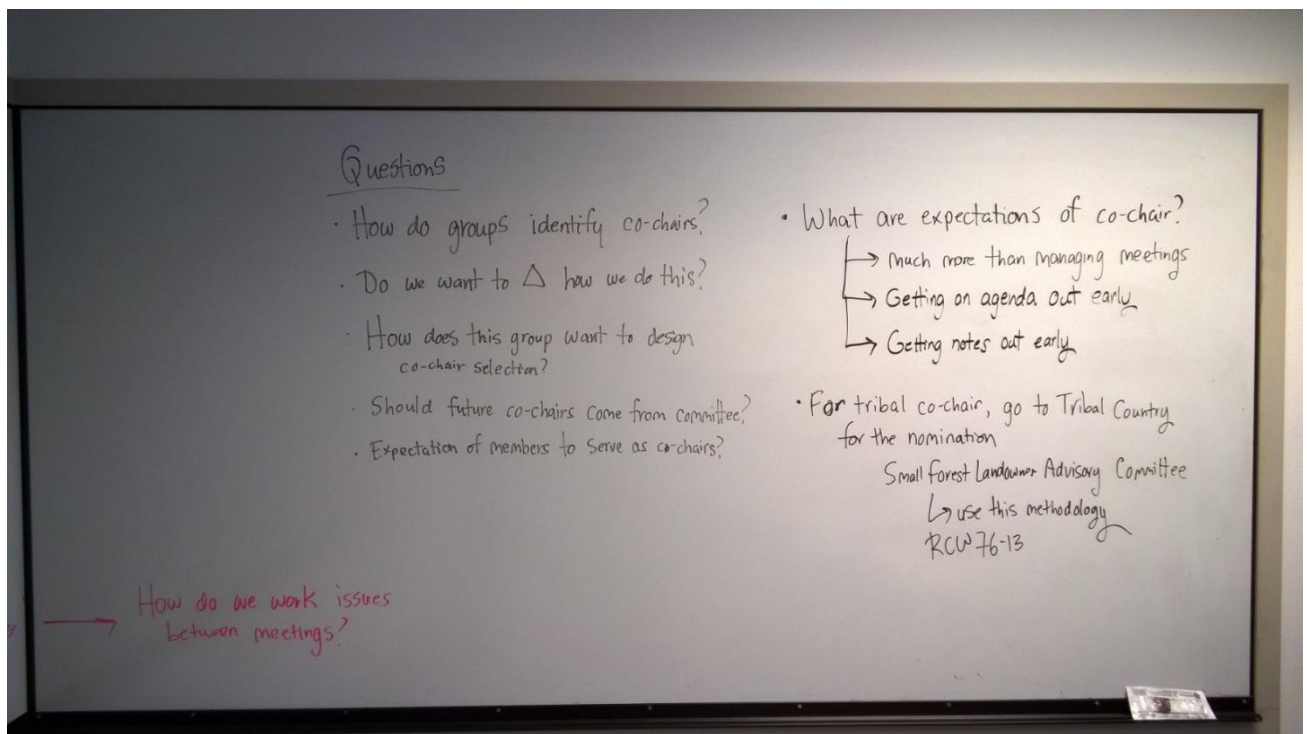 Questions
· How do groups identify co-chairs?
· Do we want to Δ how we do this?
· How does this group want to design
co-chair selection?
· Should future co-chairs come from committee?
· Expectation of members to serve as co-chairs?
· What are expectations of co-chair?
→ much more than managing meetings
→ Getting an agenda out early
→ Getting notes out early
· For tribal co-chair, go to Tribal Country
for the nomination
Small Forest Landowner Advisory Committee
↳ use this methodology
RCW 76-13
→ How do we work issues
between meetings?